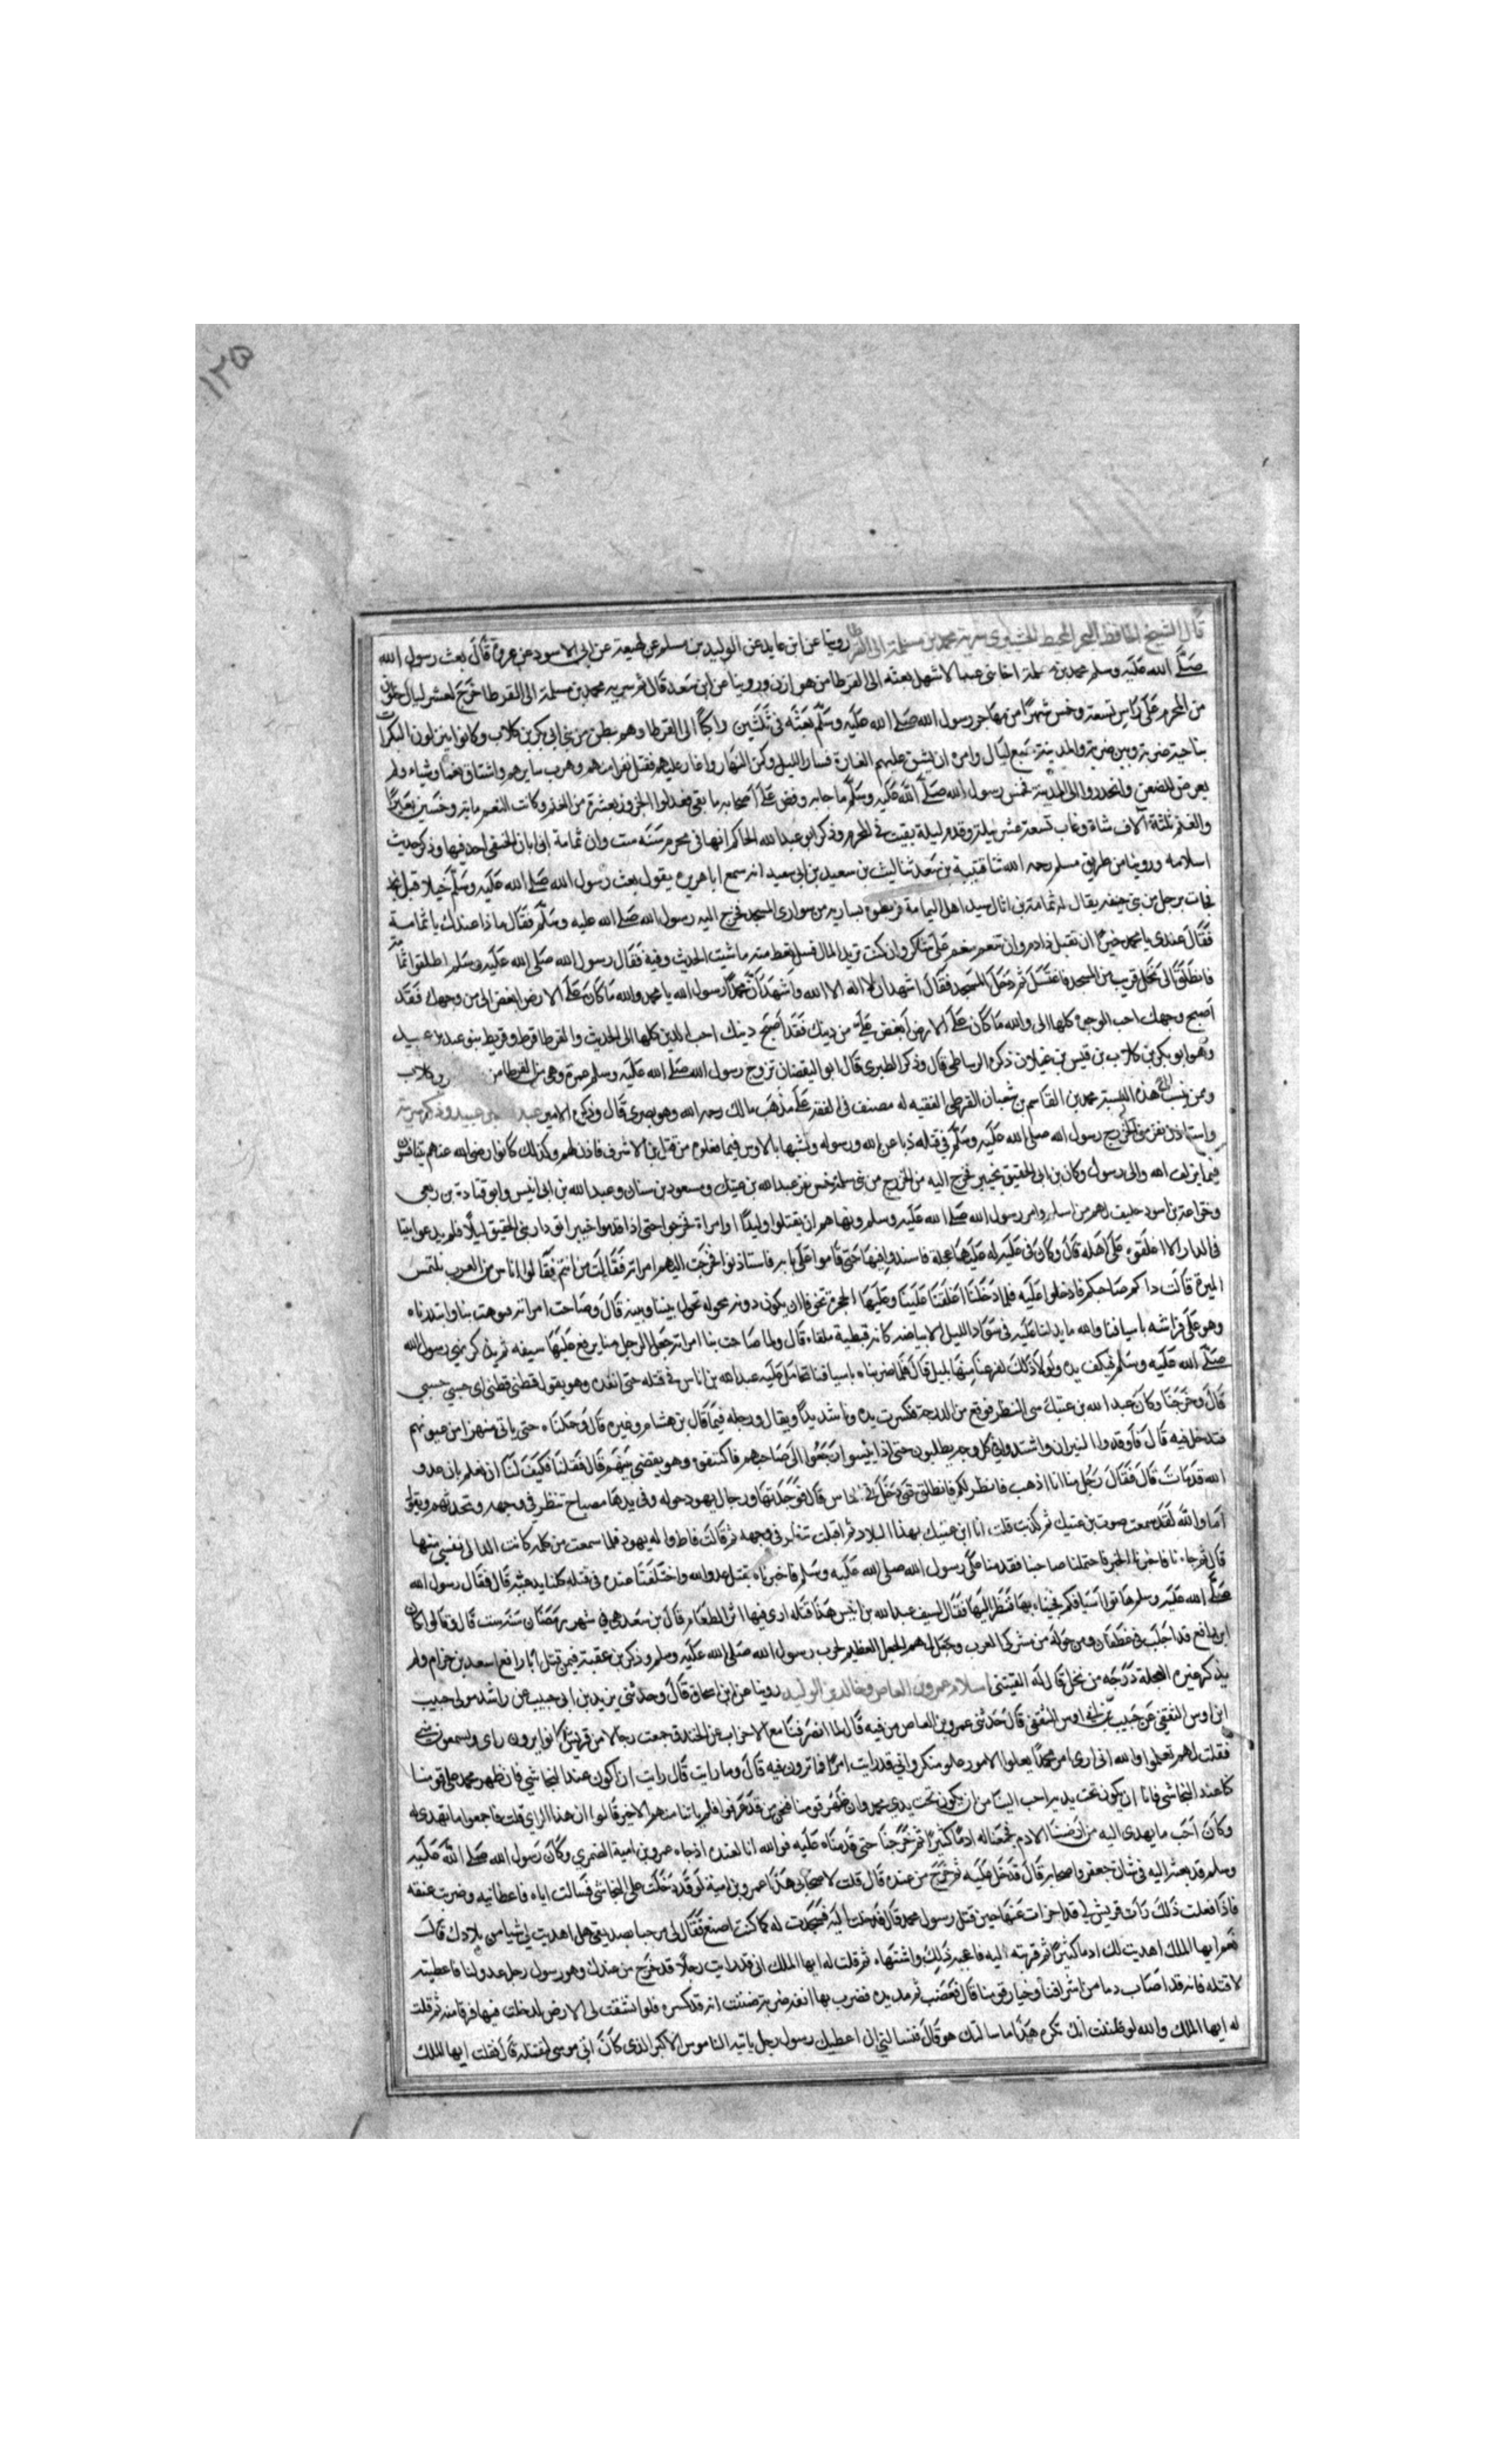 ١٢٥
قال الشيخ الحافظ البحر المحيط سرية محمد بن مسلمة الى القرطا روينا عن ابن عايد عن الوليد بن مسلم عن لهيعة عن ابى الاسود عن عروة قال بعث رسول الله
صلى الله عليه وسلم محمد بن مسلمة اخا بنى عبد الاشهل بعثه الى القرطا من هوازن وروينا عن ابن سعد قال ثم سرية محمد بن مسلمة الى القرطا خرج لعشر ليال خلون
من المحرم على راس تسعة وخمس شهرا من مهاجر رسول الله صلى الله عليه وسلم بعثه فى ثلثين راكبا الى القرطا وهم بطن من بنى ابى بكر بن كلاب وكانوا ينزلون البكرات
بناحية ضرية وبين ضرية والمدينة سبع ليال وامره ان يشن عليهم الغارة فسار الليل وكن النهار واغار عليهم فقتل نفرا منهم وهرب سايرهم واشتاق نعما وشياء ولم
يعرض للضعن وانحدر وا الى المدينة فخمس رسول الله صلى الله عليه وسلم ما جابه وفض على اصحابه ما بقى فعدلوا الجزور بعشرة من الغنم وكانت النعم ماية وخمسين بعيرا
والغنم ثلثة آلاف شاة وغاب تسعة عشر ليلة وقدم لليلة بقيت فى المحرم وذكر ابو عبد الله الحاكم انها فى محرم سنة ست وان ثمامة بن اثال الحنفى اخذ فيها وذكر حديث
اسلامه وروينا من طريق مسلم رحمه الله ثنا قتيبة بن سعد ثنا ليث بن سعيد بن ابى سعيد انه سمع ابا هريره يقول بعث رسول الله صلى الله عليه وسلم خيلا قبل نجد
فجات برجل من بنى حنيفة يقال له ثمامة بن اثال سيد اهل اليمامة فربطوه بسارية من سوارى المسجد فخرج اليه رسول الله صلى الله عليه وسلم فقال ماذا عندك يا ثمامة
فقال عندى يا محمد خير ان تقتل ذا دم وان تنعم تنعم على شاكر وان كنت تريد المال فسل تعط منه ما شيت الحديث وفيه فقال رسول الله صلى الله عليه وسلم اطلقوا ثمامة
فانطلق الى نخل قريب من المسجد فاغتسل ثم دخل المسجد فقال اشهد ان لا اله الا الله واشهد ان محمدا رسول الله يا محمد والله ما كان على الارض ابغض الى من وجهك فقد
اصبح وجهك احب الوجوه كلها الى والله ما كان على الارض ابغض على من دينك فقد اصبح دينك احب الدين كلها الى الحديث والقرطا قرط وقريط بنو عبد بن عبيد
وهو ابو بكر بن كلاب بن قيس بن غيلان ذكره الرساطى قال وذكر الطبرى قال ابو اليقضان تزوج رسول الله صلى الله عليه وسلم عمرة وهى من القرطا من كلاب
وممن ينسب هذه النسبة محمد بن القاسم بن شعبان القرطى الفقيه له مصنف فى الفقه على مذهب مالك رحمه الله وهو بصرى قال وذكره الامير
واستاذن نفر من الخزرج رسول الله صلى الله عليه وسلم فى قتله ذبا عن الله ورسوله وتشبها بالاوس فيما فعلوه من قتل بن الاشرف فاذن لهم وكذلك كانوا رضى الله عنهم يتنافسون
فيما يزلف الى الله والى رسوله وكان بن ابى الحقيق بخيبر فخرج اليه من الخزرج من بنى سلمة خمس نفر عبد الله بن عتيك ومسعود بن سنان وعبد الله بن انيس وابو قتادة بن ربعى
وخزاعة بن اسود حليف لهم من اسلم وامر رسول الله صلى الله عليه وسلم ونهاهم ان يقتلوا وليدا او امراة فخرجوا حتى اذا قدموا خيبر اتو دار بنى الحقيق ليلا فلم يدعوا بيتا
فى الدار الا اغلقوه على اهله قال وكان فى علية له عليها عجلة فاسندوا فيها حتى قاموا على بابه فاستاذنوا فخرجت اليهم امراته فقالت من انتم فقالوا اناس من العرب نلتمس
الميرة قالت ذاكم صاحبكم فادخلوا عليه فلما دخلنا اغلقنا علينا وعليها الحجرة تخوفا ان يكون دونه محوله تحول بيننا وبينه قال وصاحت امراته فنوهت بنا وابتدرناه
وهو على فراشه باسيافنا والله ما يدلنا عليه فى سواد الليل الا بياضه كانه قبطية ملقاه قال ولما صاحت بنا امراته جعل الرجل منا يرفع عليها سيفه ثم يذكر نهى رسول الله
صلى الله عليه وسلم فيكف يده ولولا ذلك لفرغنا منها بليل قال فلما ضربناه باسيافنا تحامل عليه عبد الله بن اناس فى قتله حتى انفذه وهو يقول قطنى قطنى اى حسبى حسبى
قال وخرجنا وكان عبد الله بن عتيك سى النظر فوقع من الدرجة فكسرت يده وثا شديدا ويقال ورجله فيما قال بن هشام وغيره قال وحملناه حتى ياتى منهرا من عيونهم
فندخل فيه قال فاوقدوا النيران واشتدوا فى كل وجه يطلبون حتى اذا ييسوا رجعوا الى صاحبهم فاكتنفوه وهو يقضى بينهم قال فقلنا فكيف لنا ان نعلم بان عدو
الله قد مات قال فقال رجل منا انا اذهب فانظر لكم فانطلق حتى دخل فى الناس قال فوجدتها ورجال يهود حوله وفى يدها مصباح تنظر فى وجهه وتحدثهم وتقول
اما والله لقد سمعت صوت بن عتيك ثم كذبت قلت انا ابن عتيك بهذا البلاد ثم اقبلت تنظر فى وجهه ثم قالت فاظ واله يهود فلما سمعت من كلمة كانت الذ الى نفسى منها
قال ثم جاءنا فاخبرنا الخبر فاحتملنا صاحبنا فقدمنا على رسول الله صلى الله عليه وسلم فاخبرناه بقتل عدو الله واختلفنا عنده فى قتله كلنا يدعيه قال فقال رسول الله
صلى الله عليه وسلم هاتوا اسيافكم فجيناه بها فنظر اليها فقال لسيف عبد الله بن انيس هذا قتله ارى فيها اثر الطعام قال بن سعد هى فى شهر رمضان سنة ست قال وقالوا كان
ابو رافع قد اجلب فى غطفان ومن حوله من مشركى العرب وجعل لهم الجعل العظيم لحرب رسول الله صلى الله عليه وسلم وذكر بن عقبة فيمن قتل ابا رافع اسعد بن حرام ولم
يذكره غيره العجلة درجه من نخل قاله القيتنى اسلام عمرو بن العاص وخالد بن الوليد روينا عن ابن اسحاق قال وحدثنى يزيد بن ابى حبيب عن راشد مولى حبيب
ابن اوس الثقفى عن حبيب بن اوس الثقفى قال حدثنى عمرو بن العاص من فيه قال لما انصرفنا مع الاحزاب عن الخندق جمعت رجالا من قريش كانوا يرون راى ويسمعون منى
فقلت لهم تعلموا والله انى ارى امر محمد يعلوا الامور علو منكر وانى قد رايت امرا فما ترون فيه قال وما رايت قال رايت ان اكون عند النجاشى فان ظهر محمد على قومنا
كنا عند النجاشى فانا ان يكون تحت يديه احب الينا من ان يكون تحت يدى محمد وان ظهر قومنا فنحن من قد عرفوا فلم ياتنا منهم الا خير قالوا ان هذا الراى قلت فاجمعوا ما نهدى له
وكان احب ما يهدى اليه من ارضنا الادم فجمعنا له ادما كثيرا ثم خرجنا حتى قدمناه عليه فو الله انا لعنده اذ جاء عمرو بن امية الضمرى وكان رسول الله صلى الله عليه
وسلم قد بعثه اليه فى شان جعفر واصحابه قال فدخل عليه ثم خرج من عنده قال قلت لاصحابى هذا عمرو بن امية لو قد دخلت على النجاشى فسالت اياه فاعطانيه وضربت عنقه
فاذا فعلت ذلك رات قريش انى قد اجزات عنها حين قتل رسول محمد قال فدخلت اليه فسجدت له كما كنت اصنع فقال لى مرحبا بصديقى هل اهديت لى شيا من بلادك قالت
نعم ايها الملك اهديت لك ادما كثيرا ثم قربته اليه فاعجبه ذلك واشتهاه ثم قلت له ايها الملك انى قد رايت رجلا قد خرج من عندك وهو رسول رجل عدو لنا فاعطنيه
لاقتله فانه قد اصاب دما من اشرافنا وخيار قومنا قال فغضب ثم مد يده فضرب بها انفه ضربة ضننت انه قد كسره فلو انشقت لى الارض لدخلت فيها فرقا منه ثم قلت
له ايها الملك والله لو ظننت انك تكره هذا ما سالتك هو قال فتسالنى ان اعطيك رسول رجل ياتيه الناموس الاكبر الذى كان اتى موسى لتقتله قال فقلت ايها الملك